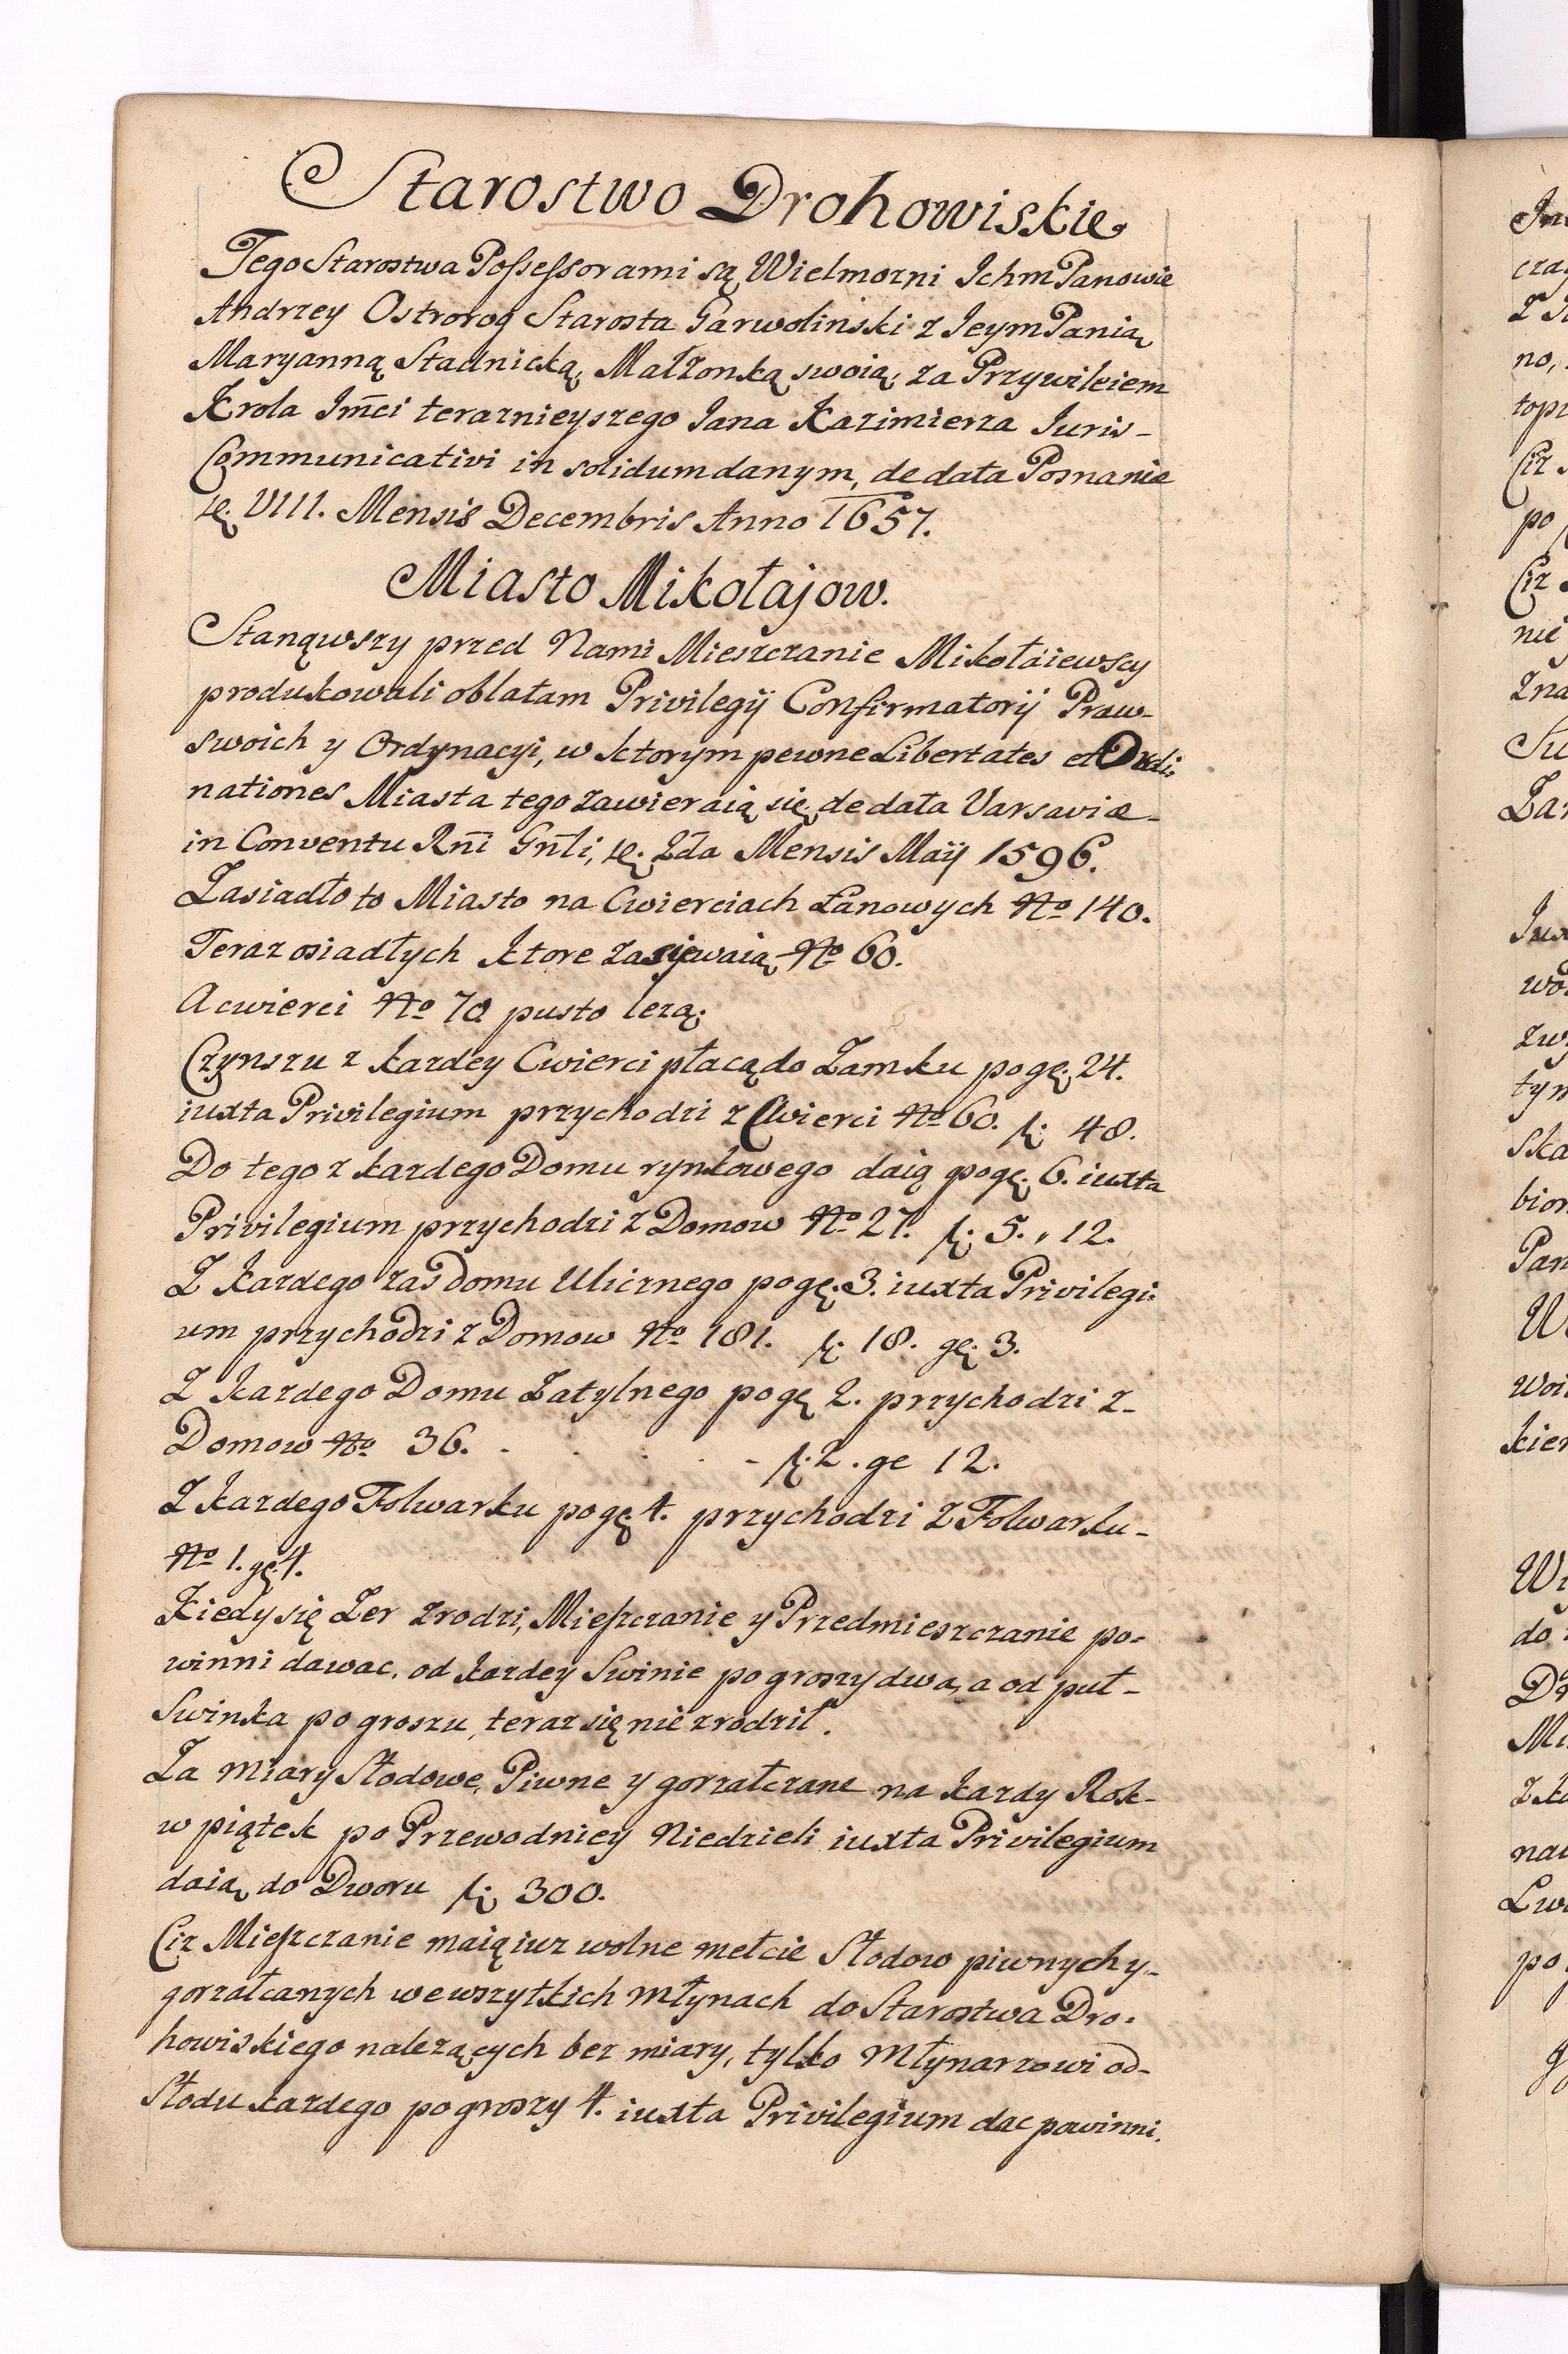 Starostwo Drohowiskie
Tego Starostwa Possessorami są Wielmozni Ichm Panowie
Andrzey Ostrorog Starosta Garwolinski z Ieym Panią
Maryanną Stadnicką, Małzonką swoią, za Przywileiem
Krola Jmći teraznieyszego Jana Kazimierza Iuris-
Communicativi in solidum danym, de data Posnaniæ
VIII. Mensis Decembris Anno 1657.
Miasto Mikołajow.
Stanąwszy przed Nami Mieszczanie Mikołaiewscy
produkowali oblatam Privilegij Confirmatorij Praw-
swoich y Ordynacyi, w ktorym pewne Libertates et Ordi:
nationes Miasta tego zawieraią się, de data Varsaviæ-
in Conventu Rñi Gñli, 2da Mensis Maij 1596.
Zasiadło to Miasto na Cwierciach Łanowych No 140.
Teraz osiadłych ktore zasiewaią No 60.
A cwierci No 70 pusto lezą.
Czynszu z kazdey Cwierci płacą do Zamku po gę. 24.
iuxta Privilegium przychodzi z Cwierci No 60. fl: 48.
Do tego z kazdego Domu rynkowego daią po gę. 6. iuxta
Privilegium przychodzi z Domow No 27. fl: 5. , 12.
Z kazdego zas Domu Ulicznego po gę. 3. iuxta Privilegi:
um przychodzi z Domow No 181. fl: 18. gę: 3.
Z kazdego Domu Zatylnego po gę 2. przychodzi z-
Domow No 36. - . . . . - fl: 2. ge 12.
Z kazdego Folwarku po gę 4. przychodzi z Folwarku-
No 1. gę. 4.
Kiedy się Zer zrodzi, Mieszczanie y Przedmieszczanie po-
winni dawac, od kazdey Swinie po groszy dwa, a od puł-
Swinka po groszu, teraz się nie zrodził.
Za miary Słodowe, Piwne y gorzałczane na kazdy Rok-
w piątek po Przewodniey Niedzieli iuxta Privilegium
daią do Dworu fl: 300.
Ciz Mieszczanie maią iuz wolne mełcie Słodow piwnych y-
gorzałcanych we wszytkich Młynach do Starostwa Dro-
howiskiego nalezących bez miary, tylko Młynarzowi od-
Słodu kazdego po groszy 4. iuxta Privilegium dac powinni.